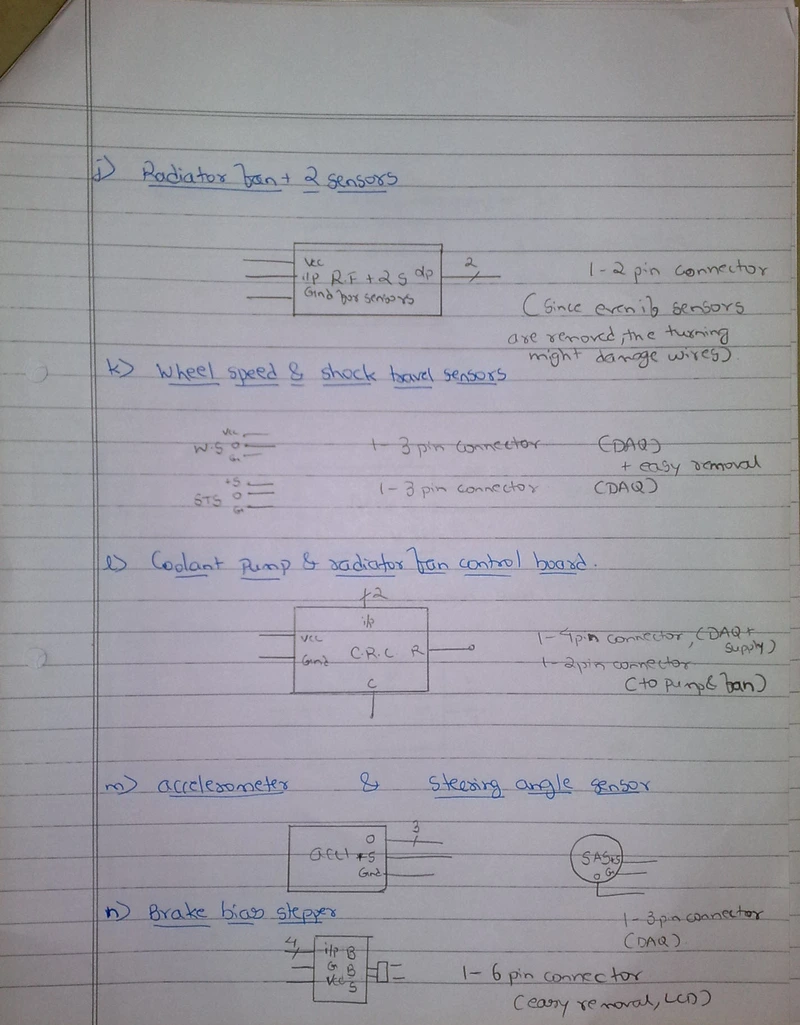 j) Radiator fan + 2 sensors
Vcc
i/p R.F + 2 S op
Gnd for sensors
2
1-2 pin connector
(since even if sensors
are removed, the turning
might damage wires).
k) Wheel speed & shock travel sensors
Vcc
W.S O
G
1-3 pin connector (DAQ)
+ easy removal
+5
STS O
G
1-3 pin connector (DAQ)
l) Coolant pump & radiator fan control board.
2
i/p
Vcc
C.R.C R
Gnd
C
1-4 pin connector, (DAQ +
supply)
1-2 pin connector
(to pump & fan)
m) accelerometer & steering angle sensor
3
O
accl +5
Gnd
SAS +5
O G
1-3 pin connector
(DAQ)
n) Brake bias stepper
4
i/p B
G B
Vcc S
1-6 pin connector
(easy removal, LCD)